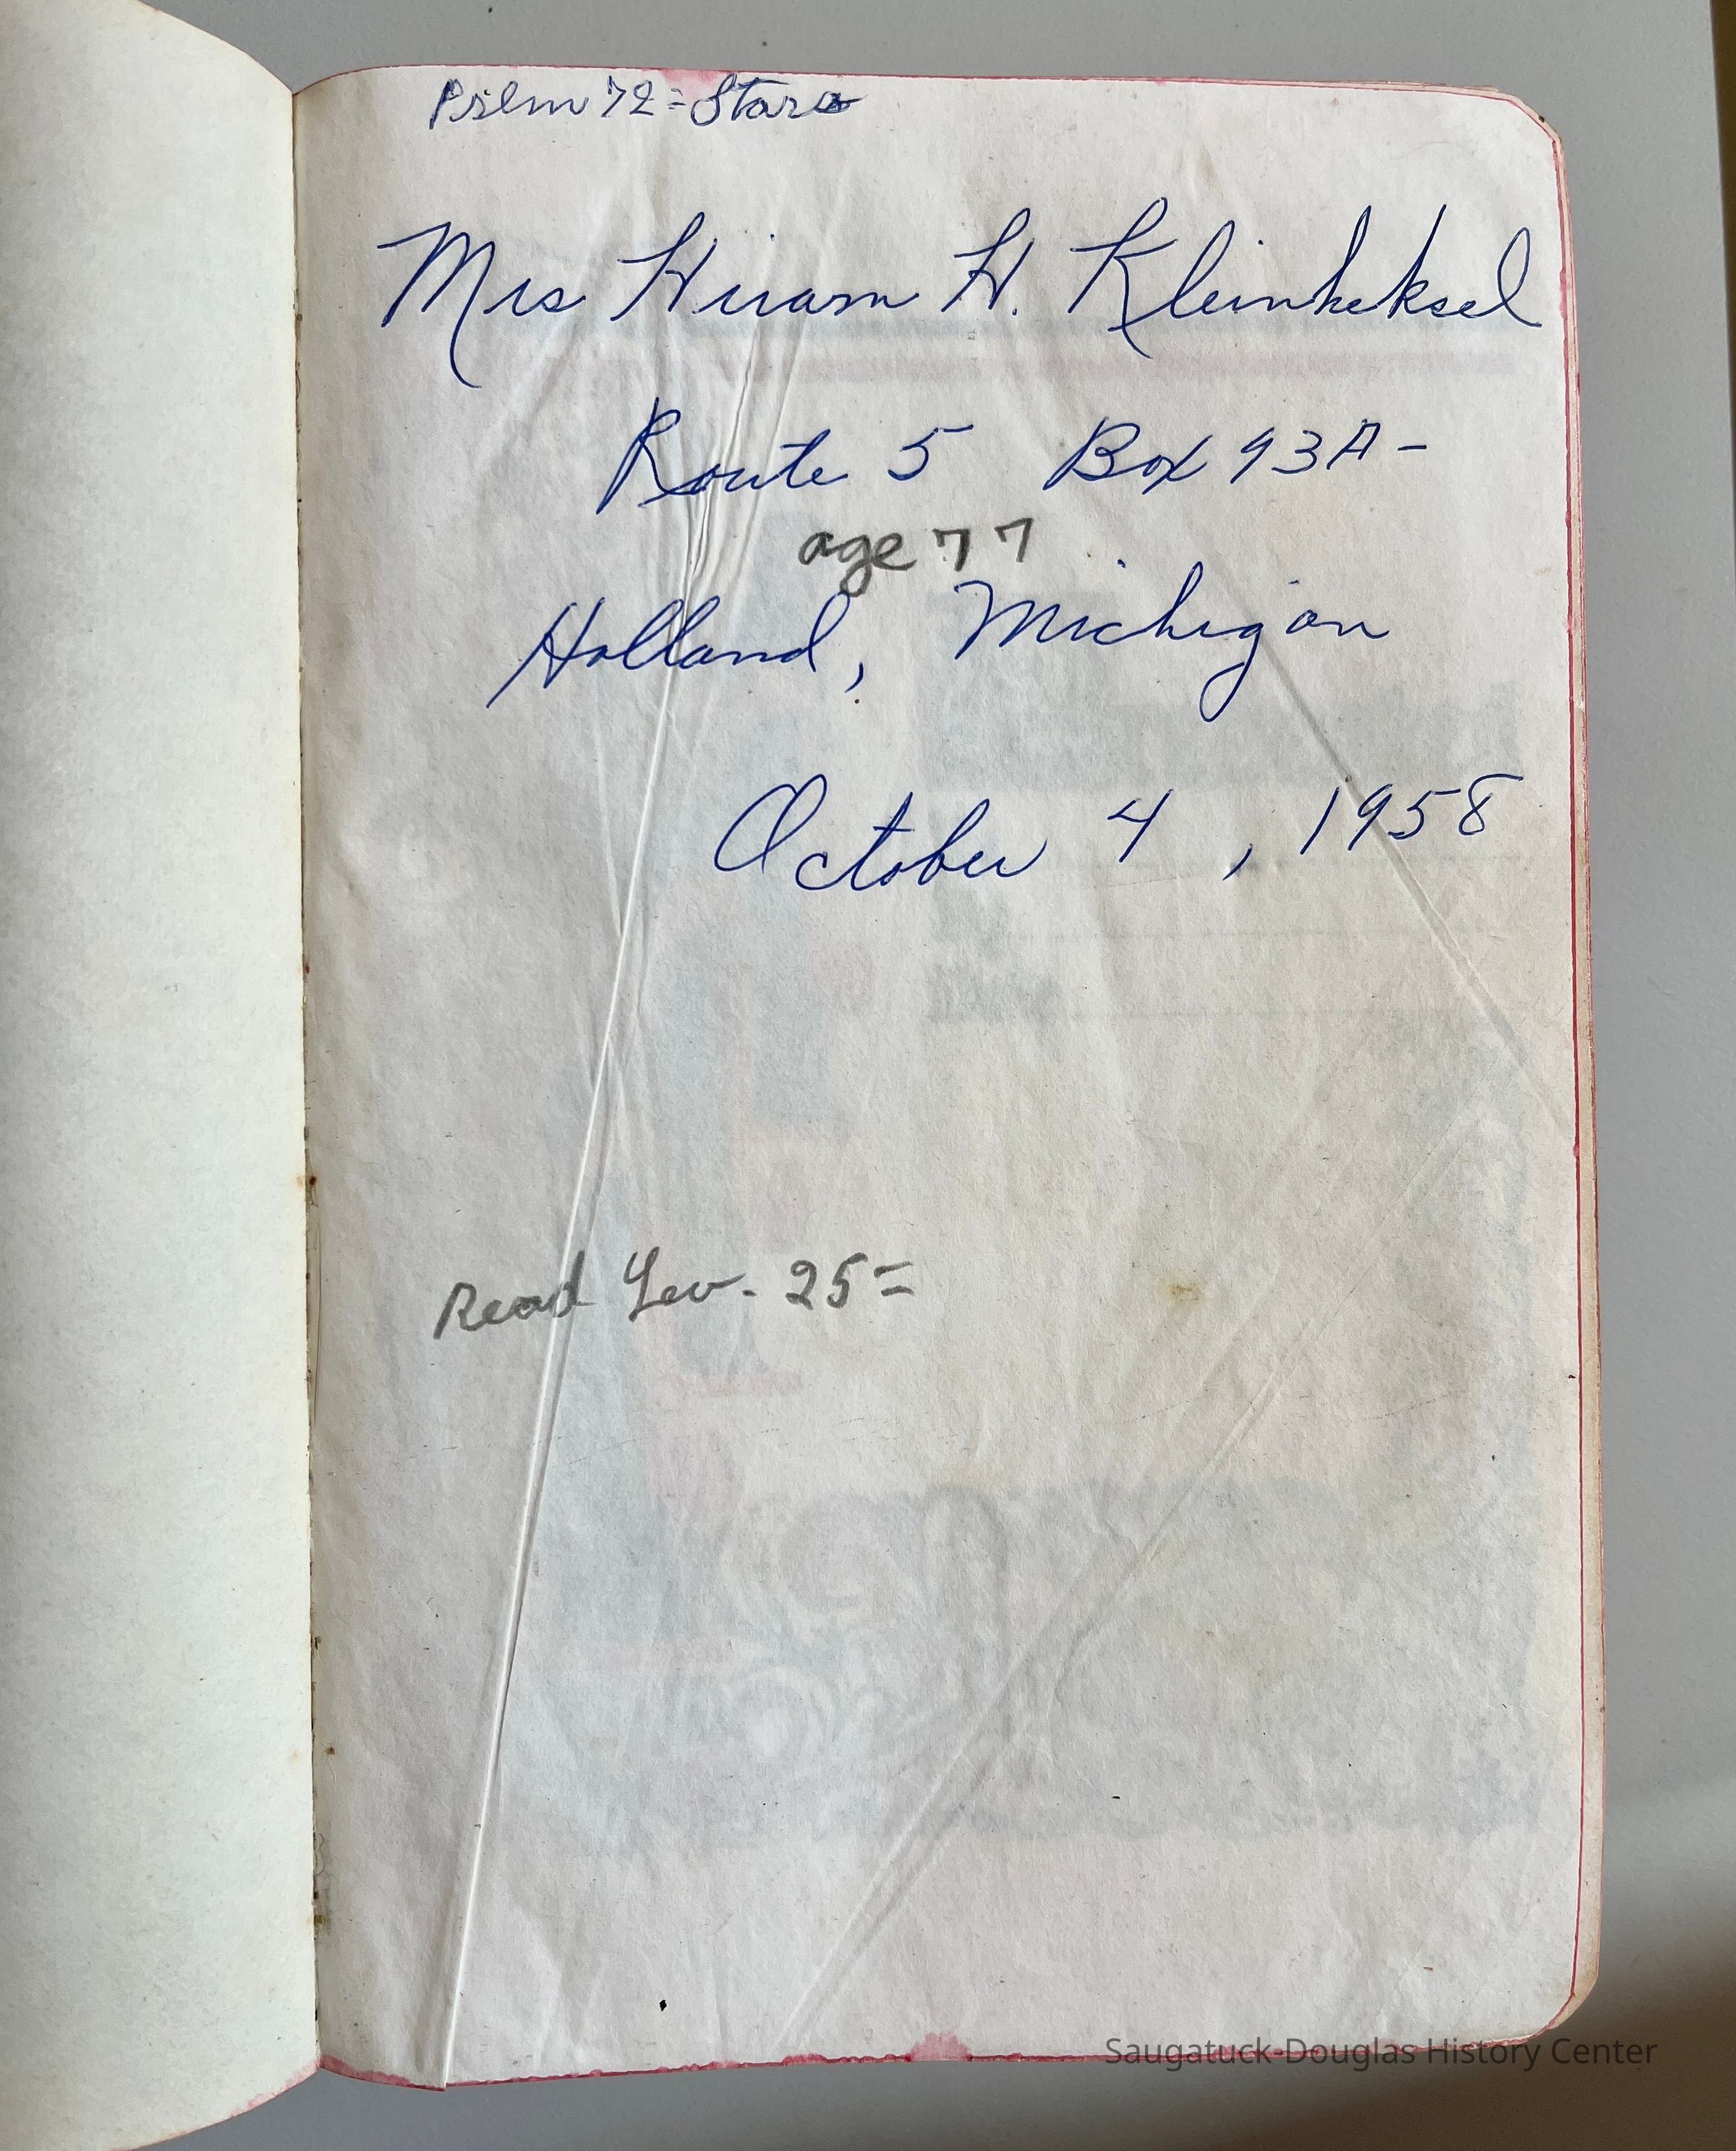 Psilm 72 = Stars
Mrs Hiram H. Kleinheksel
Route 5 Box 93A-
age 77
Holland, Michigan
October 4, 1958
Read Lev. 25=
Saugatuck-Douglas History Center